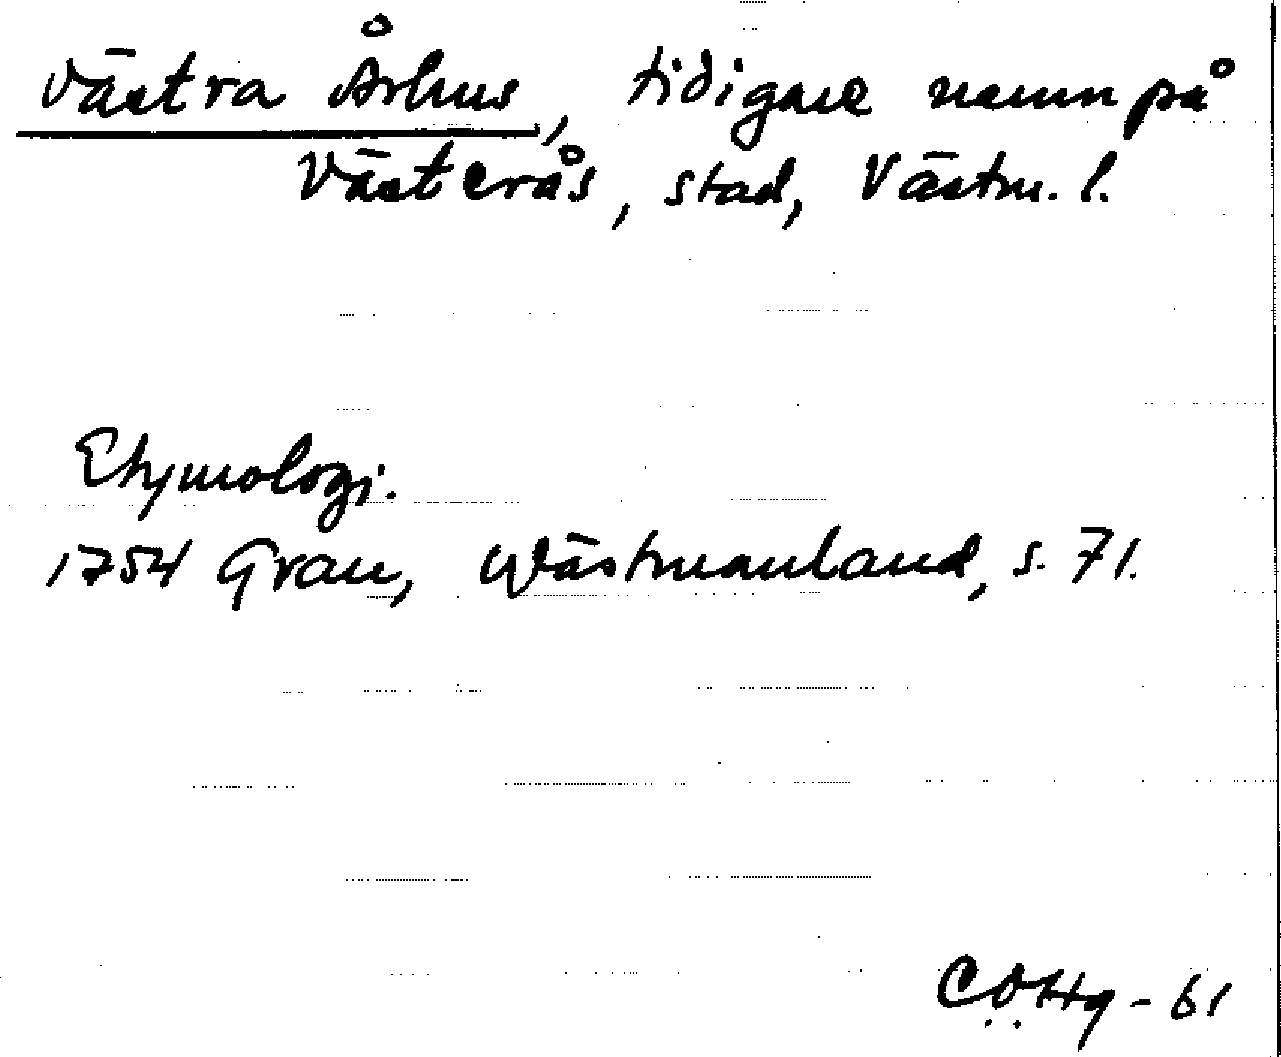 Västra Århus, tidigare namn på
Västerås, stad, Västm. l.
Etymologi.
1754 Grau, Wästmanland, s. 71.
CÖHg - 61